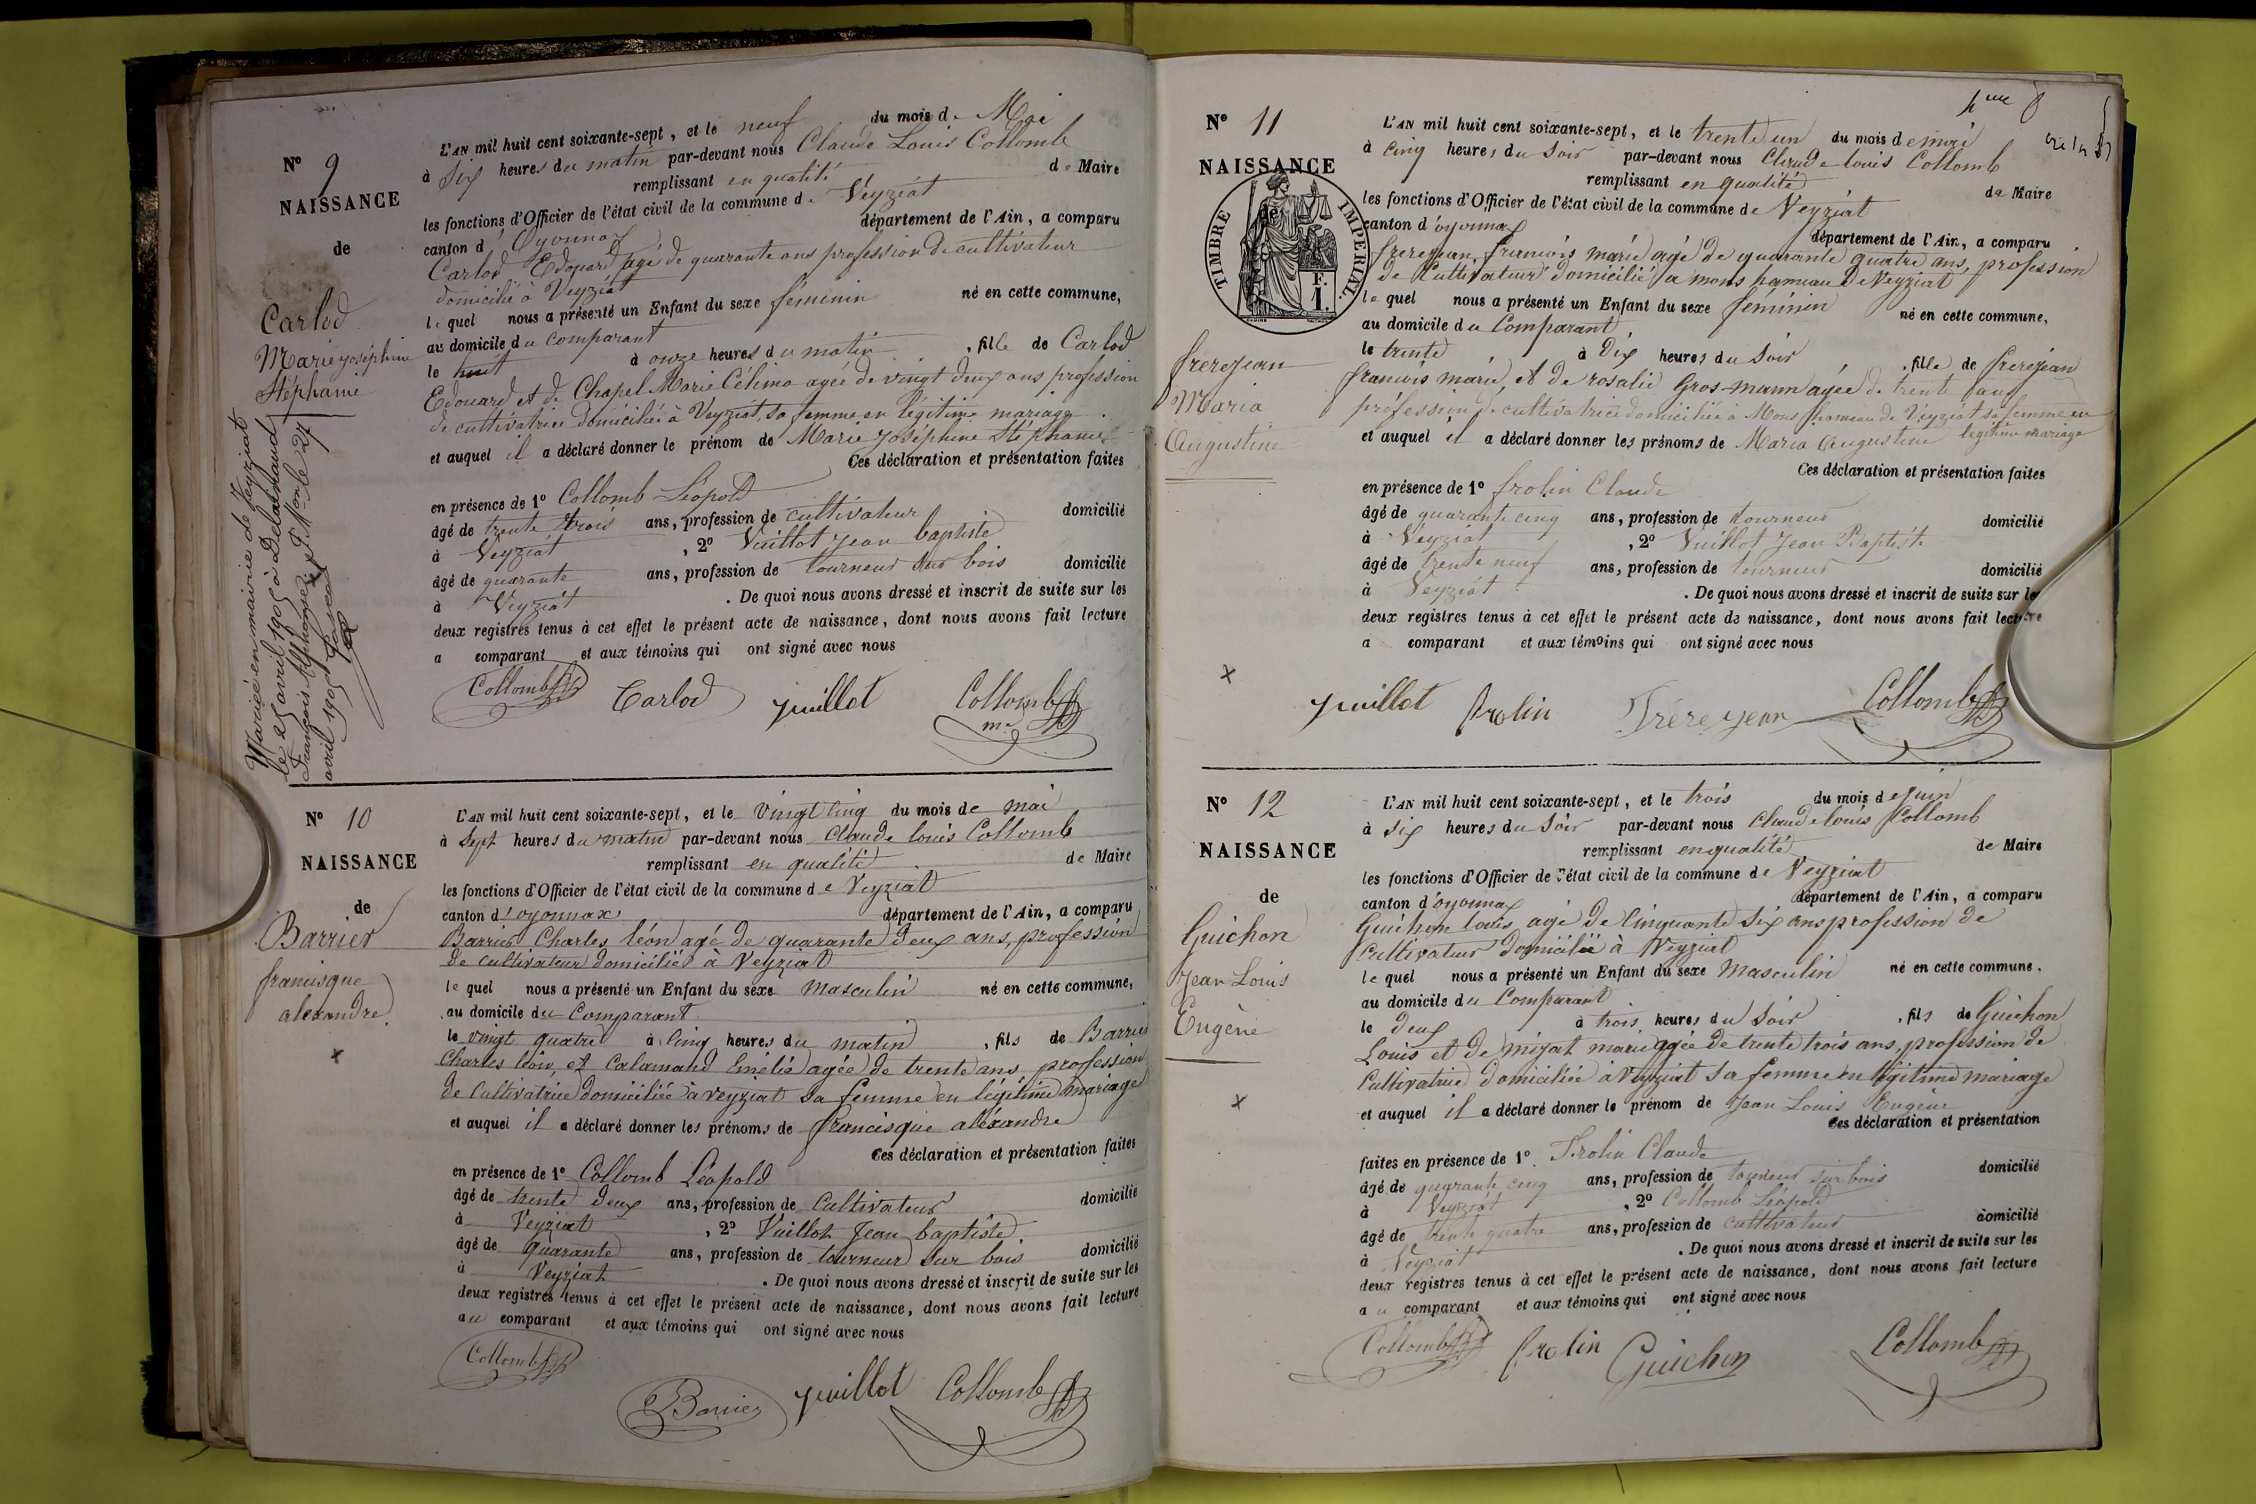 N° 9
NAISSANCE
de
Carlod
Marie joséphine
Stéphanie
Mariée en mairie de Veyziat
le 25 avril 1905 à Delarnaud
François Alphonse
avril 1905
L'AN mil huit cent soixante-sept, et le neuf du mois de Mai
à six heures du matin par-devant nous Claude Louis Collomb
remplissant en qualité de Maire
les fonctions d'Officier de l'état civil de la commune de Veyziat
canton d'Oyonnax département de l'Ain, a comparu
Carlod Edouard agé de quarante ans profession de cultivateur
domicilié à Veyziat
lequel nous a présenté un Enfant du sexe féminin né en cette commune,
au domicile du comparant
le huit à onze heures du matin, fille de Carlod
Edouard et de Chapel Marie Célima agée de vingt deux ans profession
de cultivatrice domiciliée à Veyziat, sa femme en légitime mariage
et auquel il a déclaré donner le prénom de Marie joséphine Stéphanie
Ces déclaration et présentation faites
en présence de 1° Collomb Léopold
âgé de trente trois ans, profession de cultivateur domicilié
à Veyziat, 2° Vuillot jean baptiste
âgé de quarante ans, profession de tourneur sur bois domicilié
à Veyziat. De quoi nous avons dressé et inscrit de suite sur les
deux registres tenus à cet effet le présent acte de naissance, dont nous avons fait lecture
a comparant et aux témoins qui ont signé avec nous
Collomb Carlod Vuillot Collomb
me
N° 10
NAISSANCE
de
Barrier
francisque
alexandre
x
L'AN mil huit cent soixante-sept, et le vingt cinq du mois de mai
à sept heures du matin par-devant nous Claude louis Collomb
remplissant en qualité de Maire
les fonctions d'Officier de l'état civil de la commune de Veyziat
canton d'oyonnax département de l'Ain, a comparu
Barrier Charles léon agé de quarante deux ans, profession
de cultivateur domicilié à Veyziat
lequel nous a présenté un Enfant du sexe masculin né en cette commune,
au domicile du Comparant
le vingt quatre à cinq heures du matin, fils de Barrier
Charles léon, et Calamand Emélie agée de trente ans, profession
de Cultivatrice domiciliée à veyziat sa femme en légitime mariage
et auquel il a déclaré donner les prénoms de francisque aléxandre
Ces déclaration et présentation faites
en présence de 1° Collomb Léopold
âgé de trente deux ans, profession de Cultivateur domicilié
à Veyziat, 2° Vuillot Jean baptiste
âgé de quarante ans, profession de tourneur sur bois domicilié
à Veyziat. De quoi nous avons dressé et inscrit de suite sur les
deux registres tenus à cet effet le présent acte de naissance, dont nous avons fait lecture
au comparant et aux témoins qui ont signé avec nous
Collomb
Barrier Vuillot Collomb
N° 11
NAISSANCE
de
TIMBRE IMPERIAL.
F.
1.
frerejean
Maria
Augustine
x
L'AN mil huit cent soixante-sept, et le trente un du mois de mai
à cinq heures du soir par-devant nous Claude louis Collomb
remplissant en qualité de Maire
les fonctions d'Officier de l'état civil de la commune de Veyziat
canton d'oyonnax département de l'Ain, a comparu
frerejean, francois marie agé de quarante quatre ans, profession
de Cultivateur domicilié a mons hameau de Veyziat
lequel nous a présenté un Enfant du sexe féminin né en cette commune,
au domicile du Comparant
le trente à dix heures du soir, fille de frerejean
francois marie, et de rosalie Gros-mann agée de trente ans
profession de cultivatrice domiciliée a Mons hameau de Veyziat sa femme en
et auquel il a déclaré donner les prénoms de Maria Augustine légitime mariage
Ces déclaration et présentation faites
en présence de 1° frolin Claude
âgé de quarante cinq ans, profession de tourneur domicilié
à Veyziat, 2° Vuillot Jean Baptiste
âgé de trente neuf ans, profession de tourneur domicilié
à Veyziat. De quoi nous avons dressé et inscrit de suite sur les
deux registres tenus à cet effet le présent acte de naissance, dont nous avons fait lecture
a comparant et aux témoins qui ont signé avec nous
Vuillot frolin Frérejean Collomb
N° 12
NAISSANCE
de
Guichon
Jean Louis
Eugène
x
L'AN mil huit cent soixante-sept, et le trois du mois de juin
à six heures du soir par-devant nous Claude louis Collomb
remplissant en qualité de Maire
les fonctions d'Officier de l'état civil de la commune de Veyziat
canton d'oyonnax département de l'Ain, a comparu
Guichon louis agé de cinquante six ans profession de
cultivateur domicilié à Veyziat
lequel nous a présenté un Enfant du sexe Masculin né en cette commune,
au domicile du Comparant
le deux à trois heures du soir, fils de Guichon
Louis et de mizat marie agée de trente trois ans, profession de
Cultivatrice domiciliée à Veyziat sa femme en légitime mariage
et auquel il a déclaré donner le prénom de Jean Louis Eugène
Ces déclaration et présentation
faites en présence de 1° Frolin Claude
âgé de quarante cinq ans, profession de tourneur sur bois domicilié
à Veyziat, 2° Collomb Léopold
âgé de trente quatre ans, profession de cultivateur domicilié
à Veyziat. De quoi nous avons dressé et inscrit de suite sur les
deux registres tenus à cet effet le présent acte de naissance, dont nous avons fait lecture
au comparant et aux témoins qui ont signé avec nous
Collomb frolin Guichon Collomb